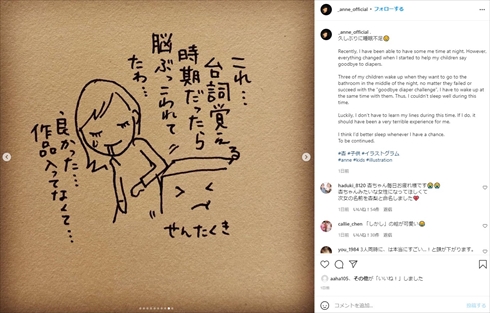 これ…
台詞覚える
時期だったら
脳ぶっこわれて
たわ…
良かった…
作品入ってなくて…
せんたくき
_anne_official • フォローする
_anne_official .
久しぶりに睡眠不足
Recently, I have been able to have some me time at night. However,
everything changed when I started to help my children say
goodbye to diapers.
Three of my children wake up when they want to go to the
bathroom in the middle of the night, no matter they failed or
succeed with the "goodbye diaper challenge". I have to wake up at
the same time with them. Thus, I couldn't sleep well during this
time.
Luckily, I don't have to learn my lines during this time. If I do, it
should have been a very terrible experience for me.
I think I'd better sleep whenever I have a chance.
To be continued.
#杏 #子供 #イラストグラム
#anne #kids #illustration
1日前
haduki_8120 杏ちゃん毎日お疲れ様です😭😭
杏ちゃんみたいな女性になってほしくて
次女の名前を杏梨と命名しました❤
1日前 いいね！54件 返信
callie_chen 「しかし」の絵が可愛い😂
1日前 いいね！36件 返信
you_1984 3人同時に、は本当にすごい…！と頭が下がります。
aaha105、その他が「いいね！」しました
1日前
コメントを追加...